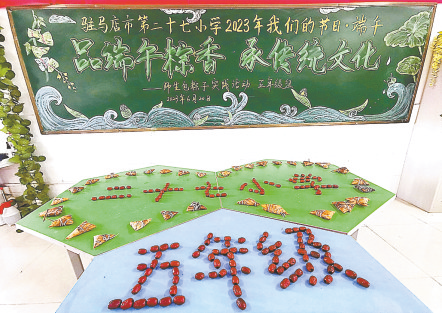 驻马店市第二十七小学2023年我们的节日·端午
品端午粽香 承传统文化
——师生包粽子实践活动
2023年6月20日
二十七小学
五年级